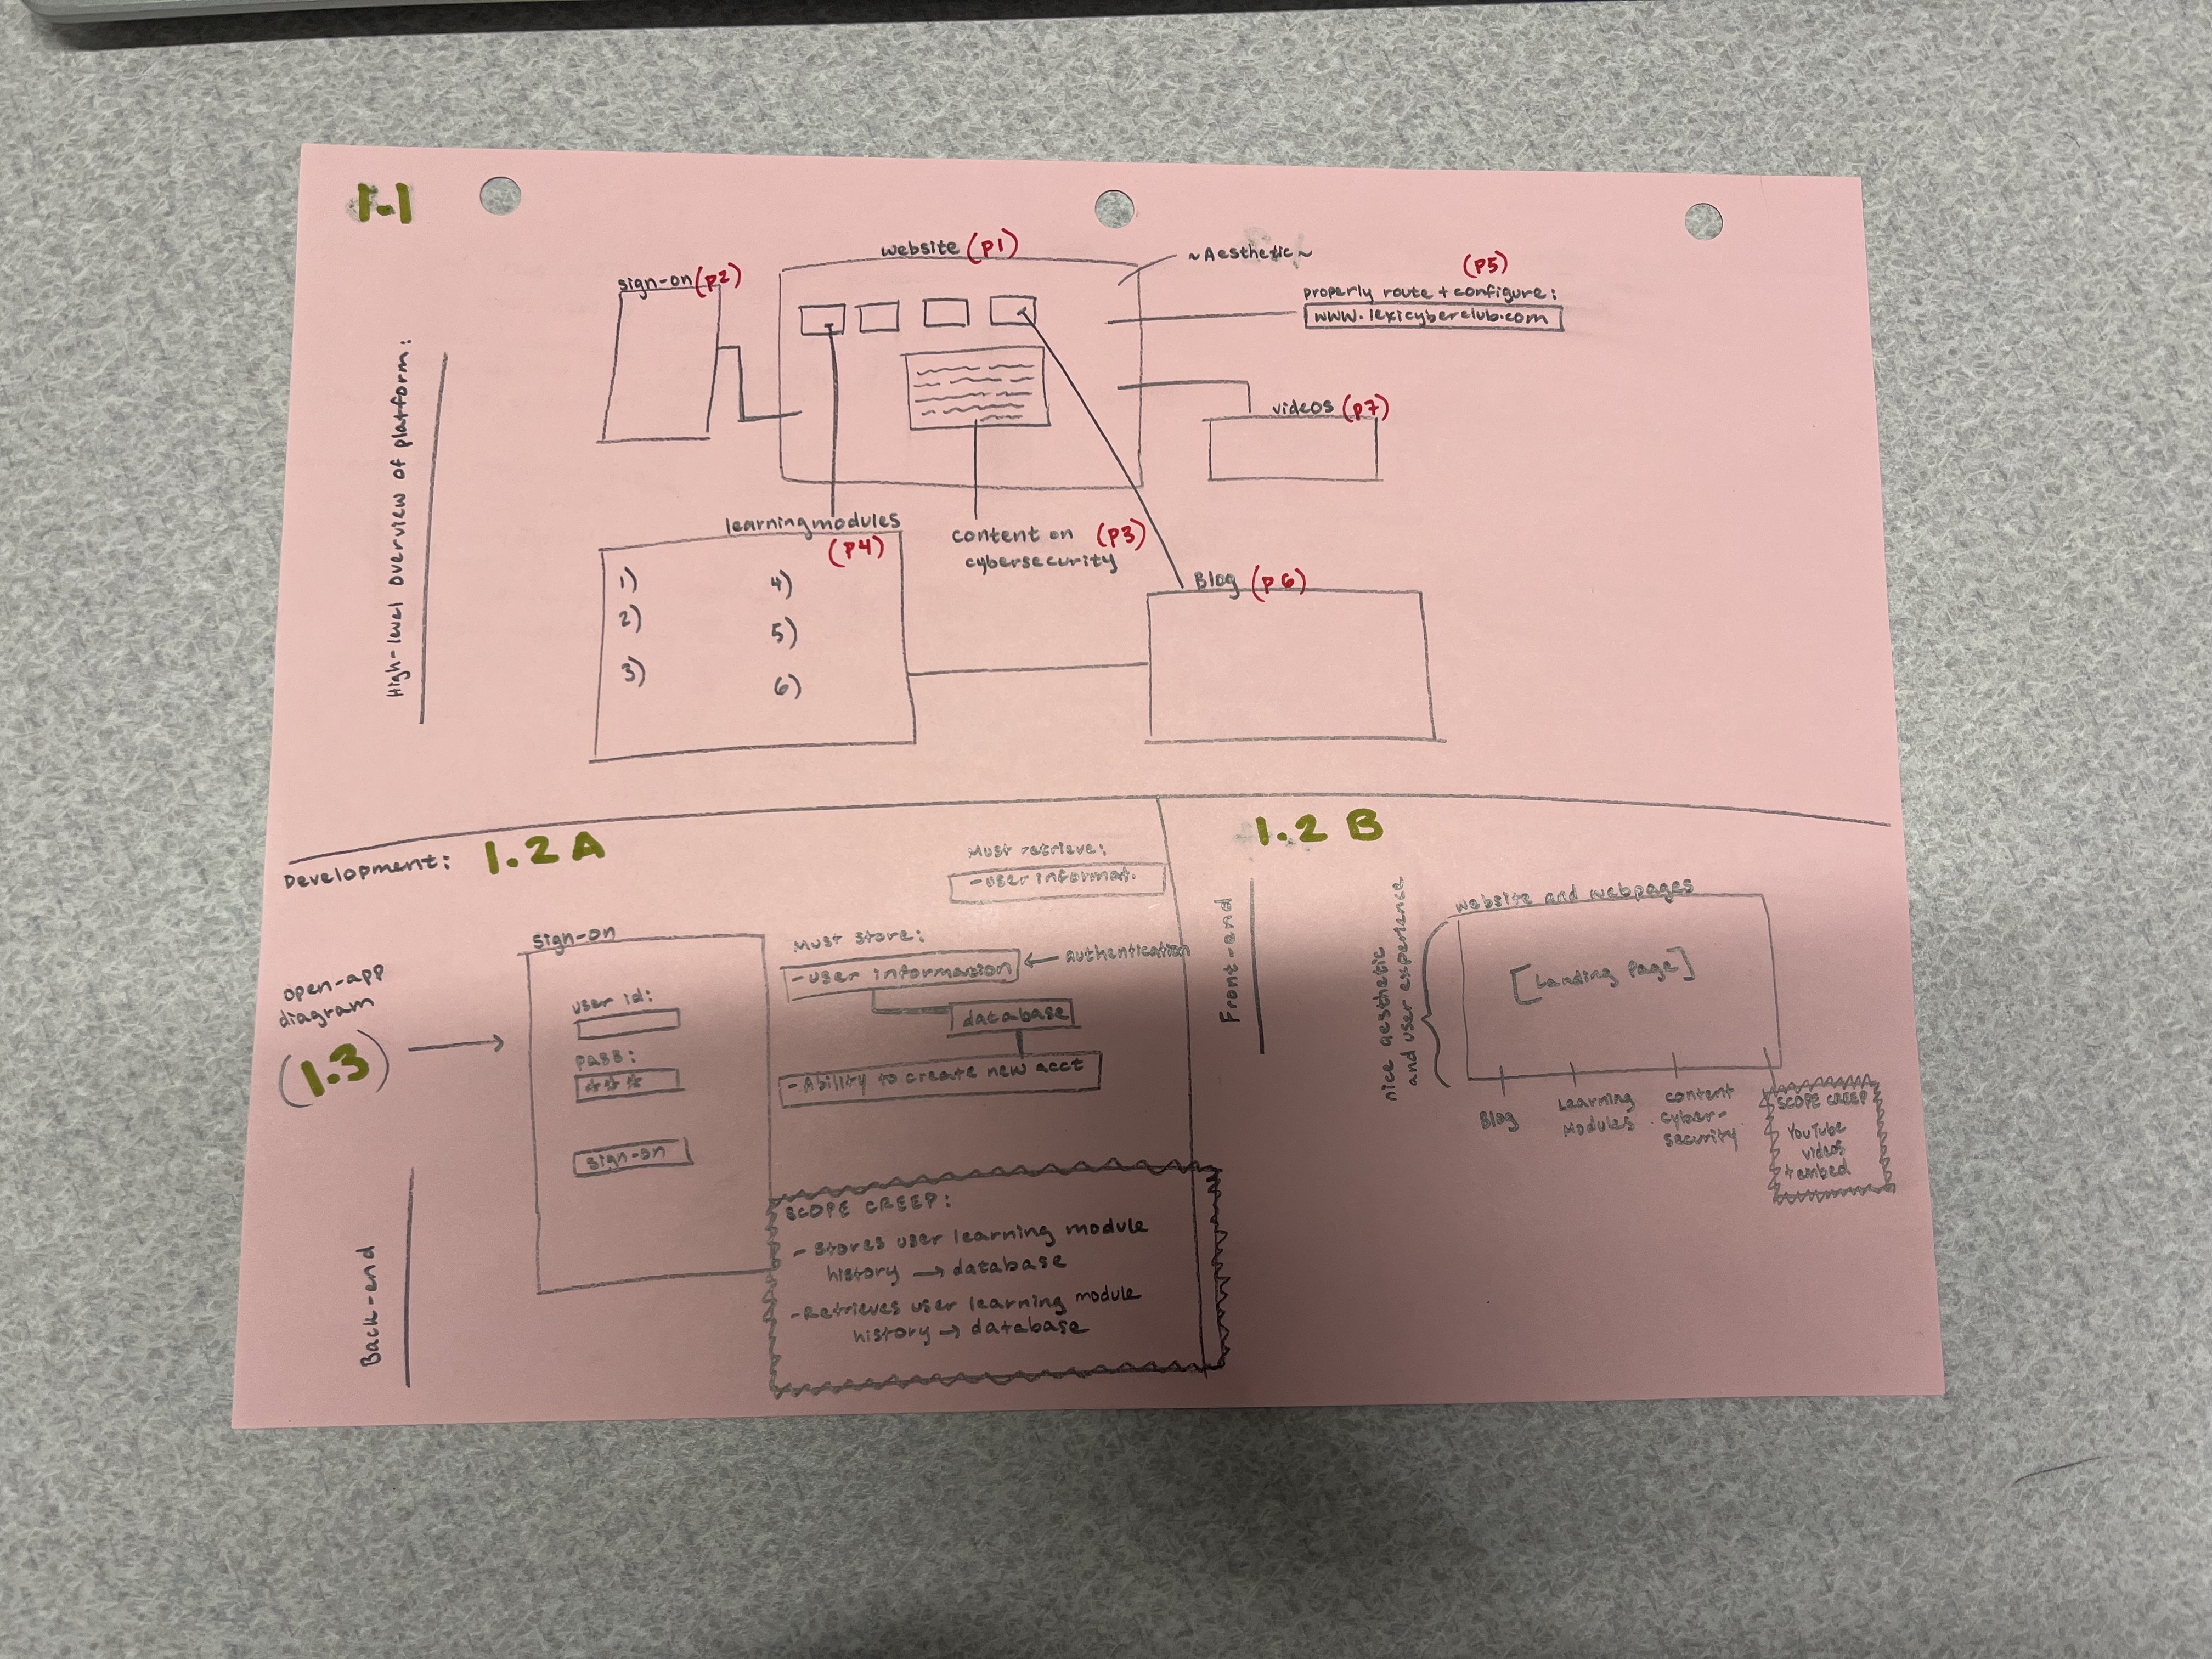 1.1
High-level overview of platform:
website (P1)
sign-on (P2)
~Aesthetic~
(P5)
properly route + configure:
www.lexicyberclub.com
videos (P7)
learning modules
(P4)
1)
2)
3)
4)
5)
6)
content on (P3)
cybersecurity
Blog (P6)
Development: 1.2 A
Back-end
open-app
diagram
(1.3)
sign-on
user id:
pass:
***
sign-on
Must retrieve:
-user informat.
Must store:
-user information
authentication
database
-Ability to create new acct
SCOPE CREEP:
-Stores user learning module
history → database
-Retrieves user learning module
history → database
1.2 B
Front-end
nice aesthetic
and user experience
website and webpages
[Landing Page]
Blog
Learning
Modules
content
cyber-
security
SCOPE CREEP
YouTube
videos
+ embed